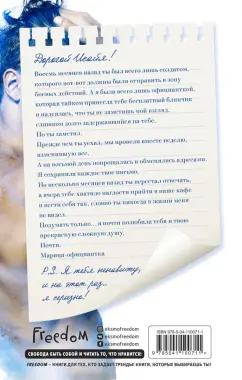 Дорогой Исайя!
Восемь месяцев назад ты был всего лишь солдатом,
которого вот-вот должны были отправить в зону
боевых действий. А я была всего лишь официанткой,
которая тайком принесла тебе бесплатный блинчик
и надеялась, что ты не заметишь мой взгляд,
слишком долго задержавшийся на тебе.
Но ты заметил.
Прежде чем ты уехал, мы провели вместе неделю,
изменившую все.
А на восьмой день попрощались и обменялись адресами.
Я сохранила каждое твое письмо.
Но несколько месяцев назад ты перестал отвечать,
а вчера тебе хватило наглости прийти в наше кафе
и вести себя так, словно ты никогда в жизни меня
не видел.
Подумать только... я почти полюбила тебя и твою
прекрасную сложную душу.
Почти.
Марица-официантка
P.S. Я тебя ненавижу,
и на этот раз...
я серьезно!
Freedom
eksmofreedom
eksmofreedom
СВОБОДА БЫТЬ СОБОЙ И ЧИТАТЬ ТО, ЧТО НРАВИТСЯ!
FREEDOM – КНИГИ ДЛЯ ТЕХ, КТО ЗАДАЕТ ТРЕНДЫ! КНИГИ, КОТОРЫЕ ВЫБИРАЕШЬ ТЫ!
ISBN 978-5-04-110071-1
9 785041 100711 >